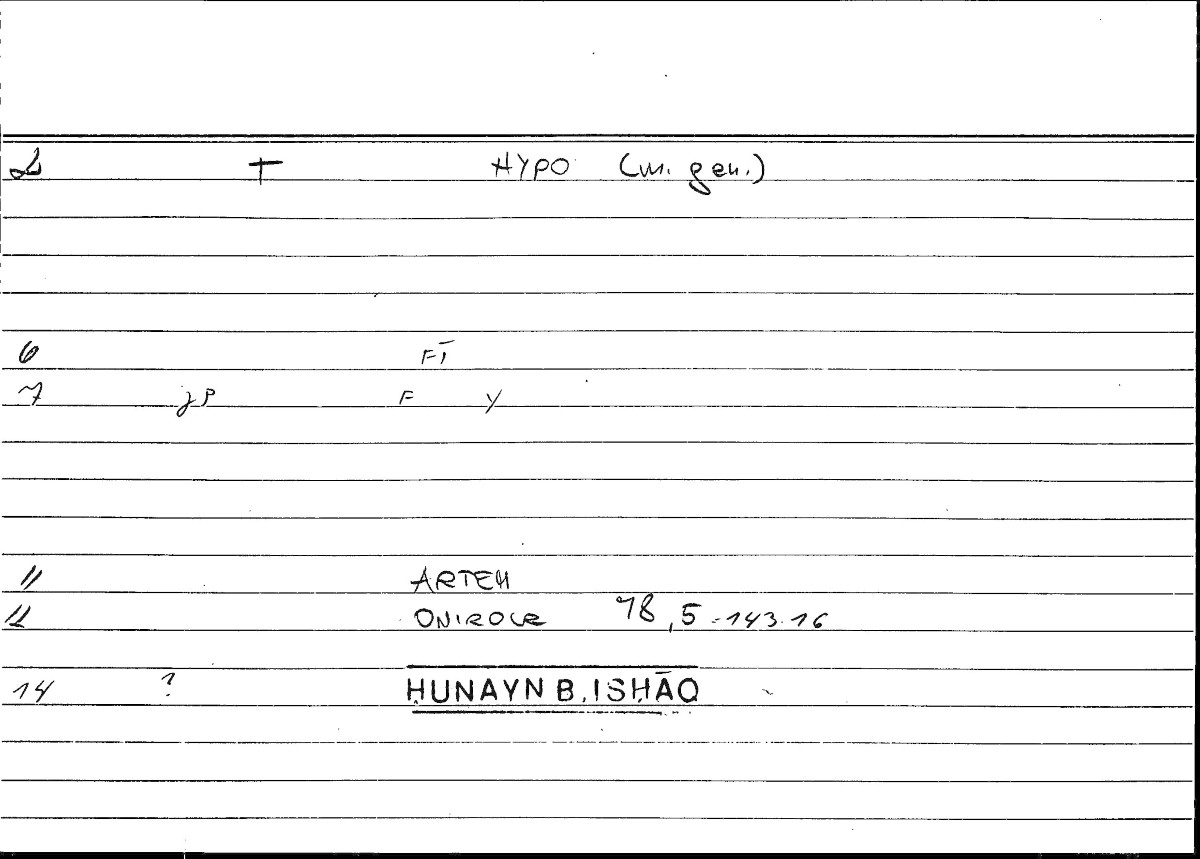 2 † HYPO (m. gen.)
6 FĪ
7 jP F Y
11 ARTEM
12 ONIROCR 78,5-143.16
14 ? ḤUNAYN B. ISḤĀQ